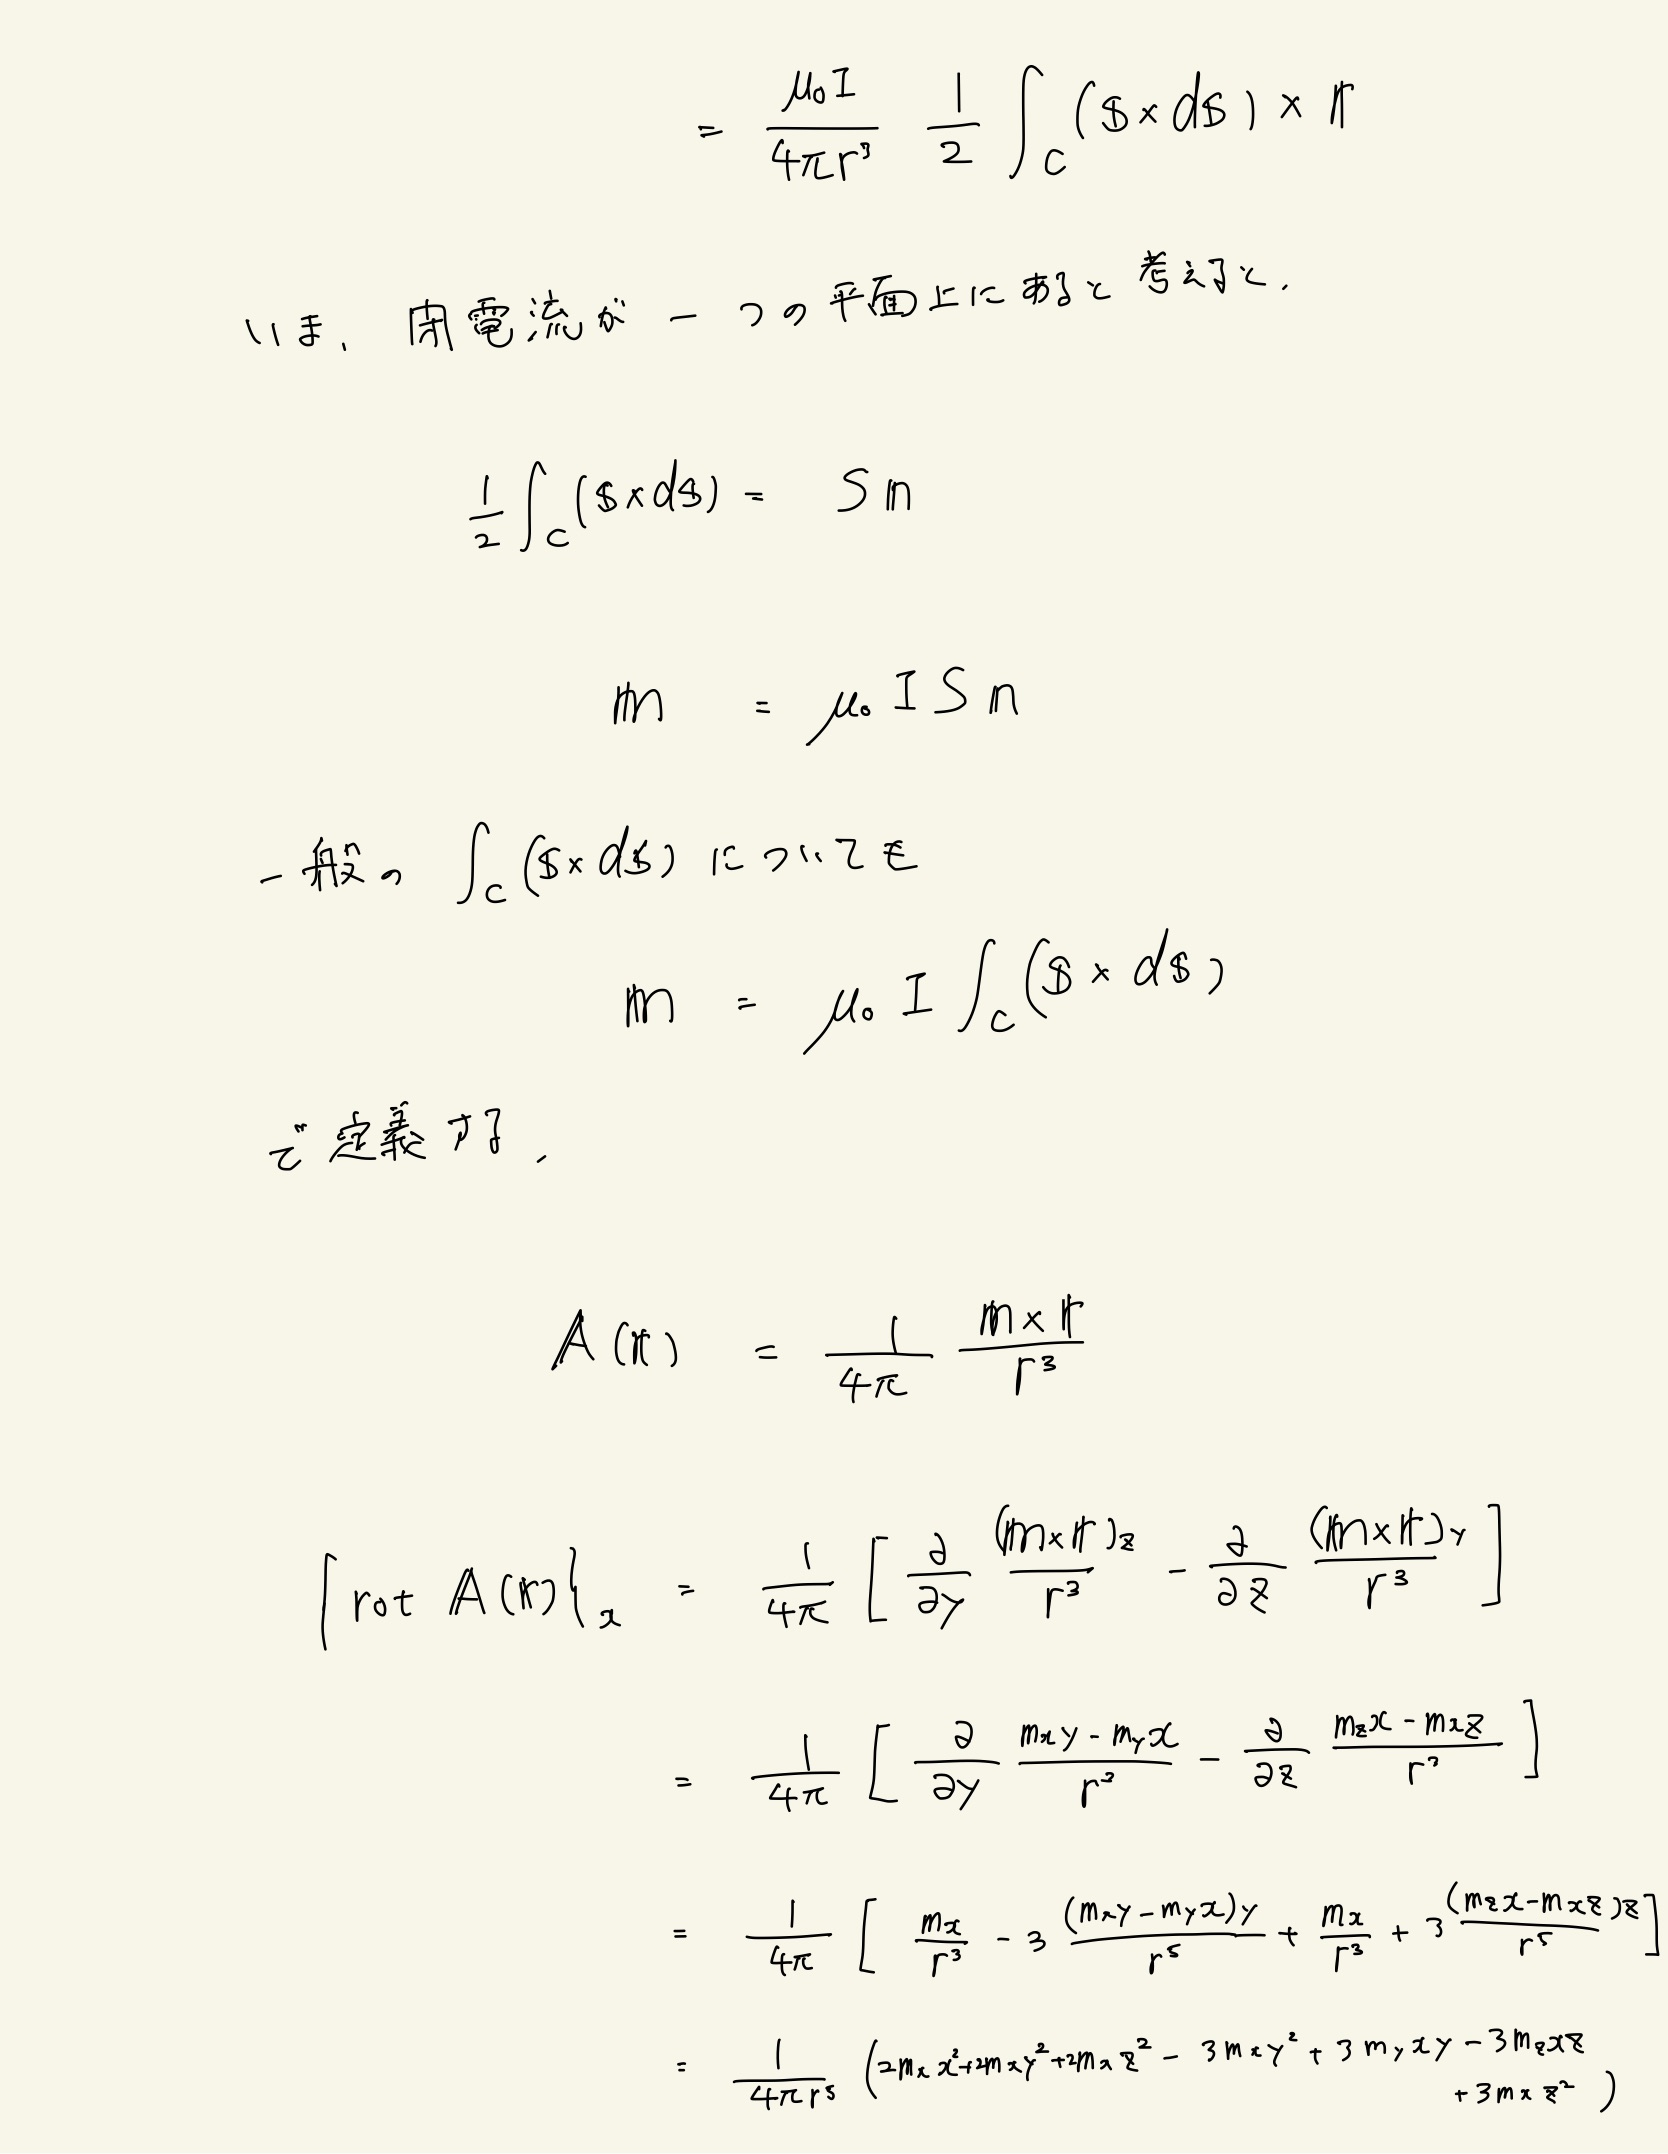 = μ₀I/4πr³ 1/2 ∫_C (𝕤×d𝕤)×𝕣
いま、閉電流が一つの平面上にあると考えると、
1/2 ∫_C (𝕤×d𝕤) = S𝕟
𝕞 = μ₀IS𝕟
一般の ∫_C (𝕤×d𝕤) についても
𝕞 = μ₀I ∫_C (𝕤×d𝕤)
で定義する、
𝔸(𝕣) = 1/4π 𝕞×𝕣/r³
[rot 𝔸(𝕣)]_x = 1/4π [ ∂/∂y (𝕞×𝕣)_z/r³ − ∂/∂z (𝕞×𝕣)_y/r³ ]
= 1/4π [ ∂/∂y (m_x y − m_y x)/r³ − ∂/∂z (m_z x − m_x z)/r³ ]
= 1/4π [ m_x/r³ − 3 (m_x y − m_y x)y/r⁵ + m_x/r³ + 3 (m_z x − m_x z)z/r⁵ ]
= 1/4πr⁵ (2m_x x² + 2m_x y² + 2m_x z² − 3m_x y² + 3m_y xy − 3m_z xz
+ 3m_x z²)